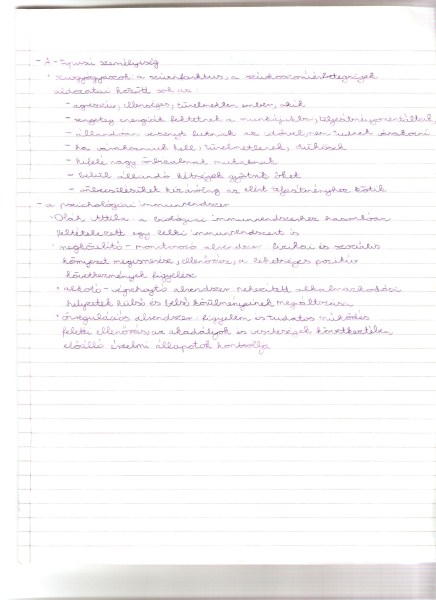 - A - típusú személyiség
• szívgyógyászok a szívinfarktus, a szívkoszorúérbetegségek
áldozatai között sok az:
- agresszív, ellenséges, türelmetlen ember, akik
- rengeteg energiát fektetnek a munkájukba, teljesítményorientáltak,
- állandóan versenyt futnak az idővel, nem tudnak várakozni
- ha várakozniuk kell, türelmetlenek, dühösek
- kifelé nagy önbizalmat mutatnak
- belül állandó kétségek gyötrik őket
- önbecsülésüket kizárólag az elért teljesítményhez kötik
- a pszichológiai immunrendszer
• Oláh Attila: a biológiai immunrendszerhez hasonlóan
feltételezett egy lelki immunrendszert is
• megközelítő - monitorozó alrendszer: fizikai és szociális
környezet megismerése, ellenőrzése, a lehetséges pozitív
következmények figyelése
• alkotó - végrehajtó alrendszer: nehezített alkalmazkodási
helyzetek külső és belső körülményeinek megváltoztatása
• önregulációs alrendszer: figyelem és tudatos működés
feletti ellenőrzés, az akadályok és veszteségek következtében
előálló érzelmi állapotok kontrollja